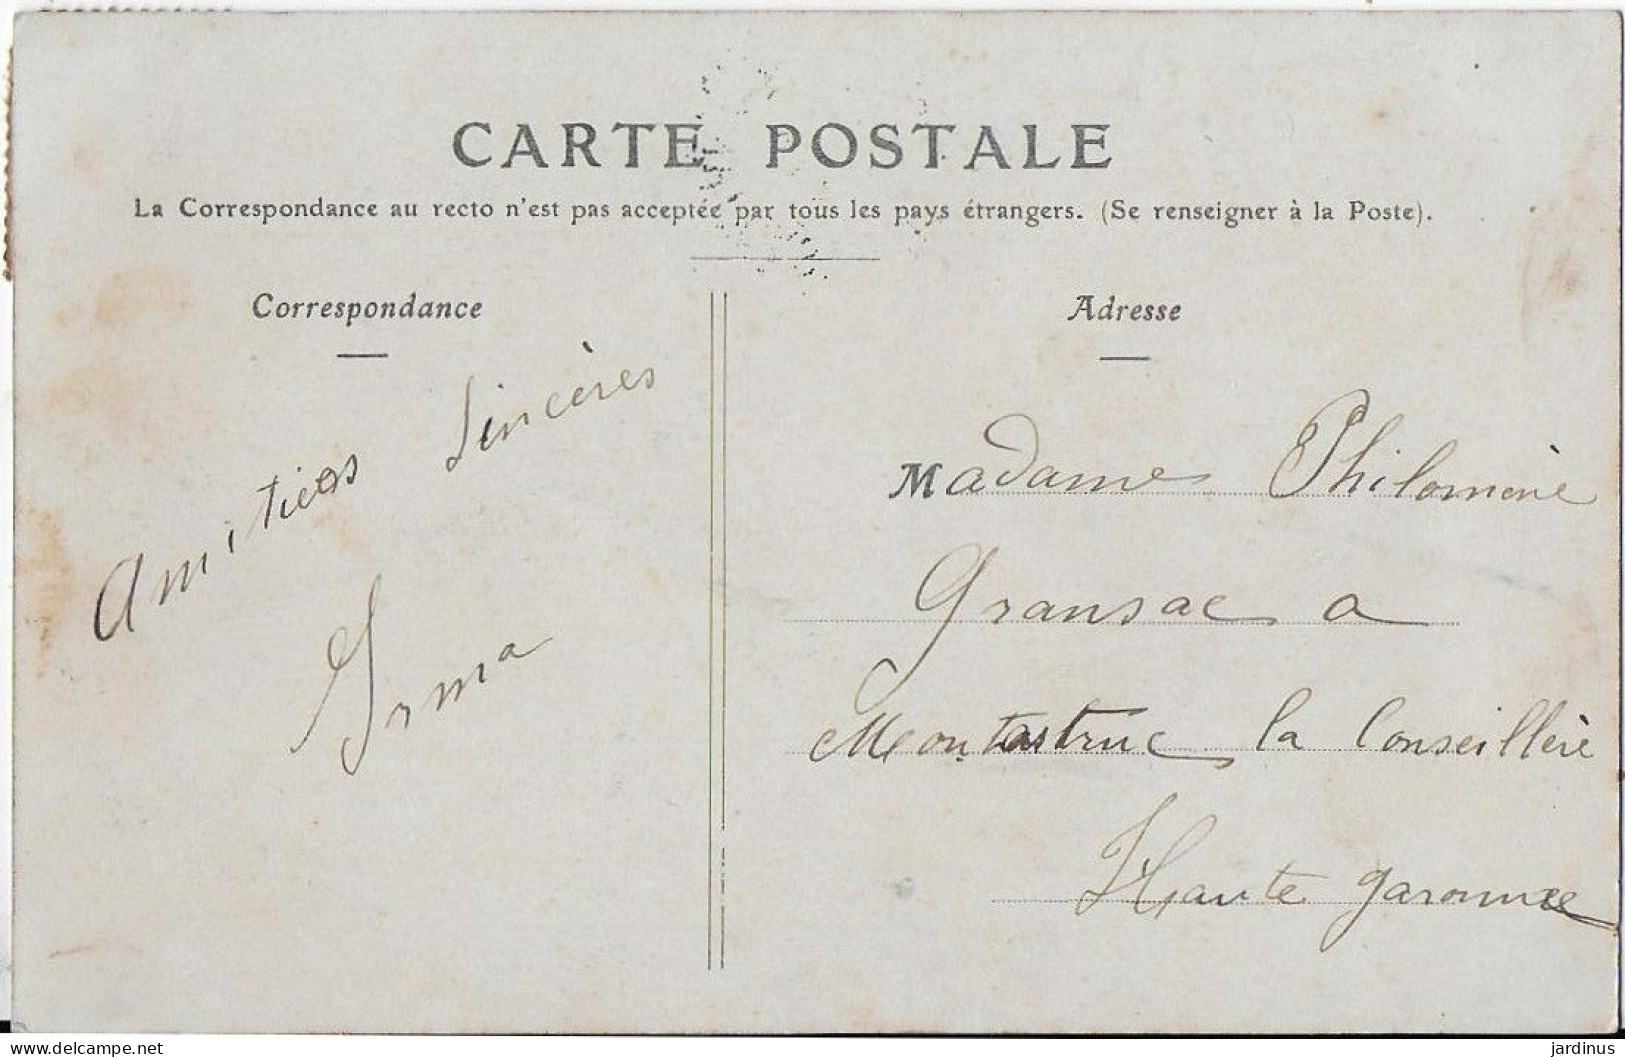 CARTE POSTALE
La Correspondance au recto n'est pas acceptée par tous les pays étrangers. (Se renseigner à la Poste).
Correspondance
Amitiers Sincères
Irma
Adresse
Madame Philomène
Gransac a
Montastruc la Conseillère
Haute garonne
delcampe.net
jardinus